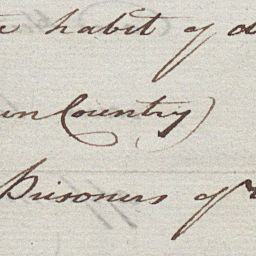 habit of d
Country)
Prisoners of